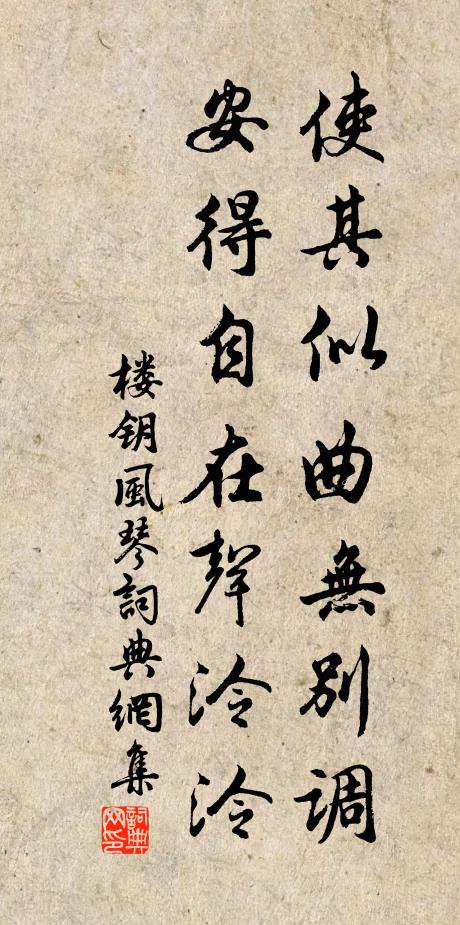 使其似曲無別調
安得自在聲泠泠
楼钥風琴詞典網集
詞典網印